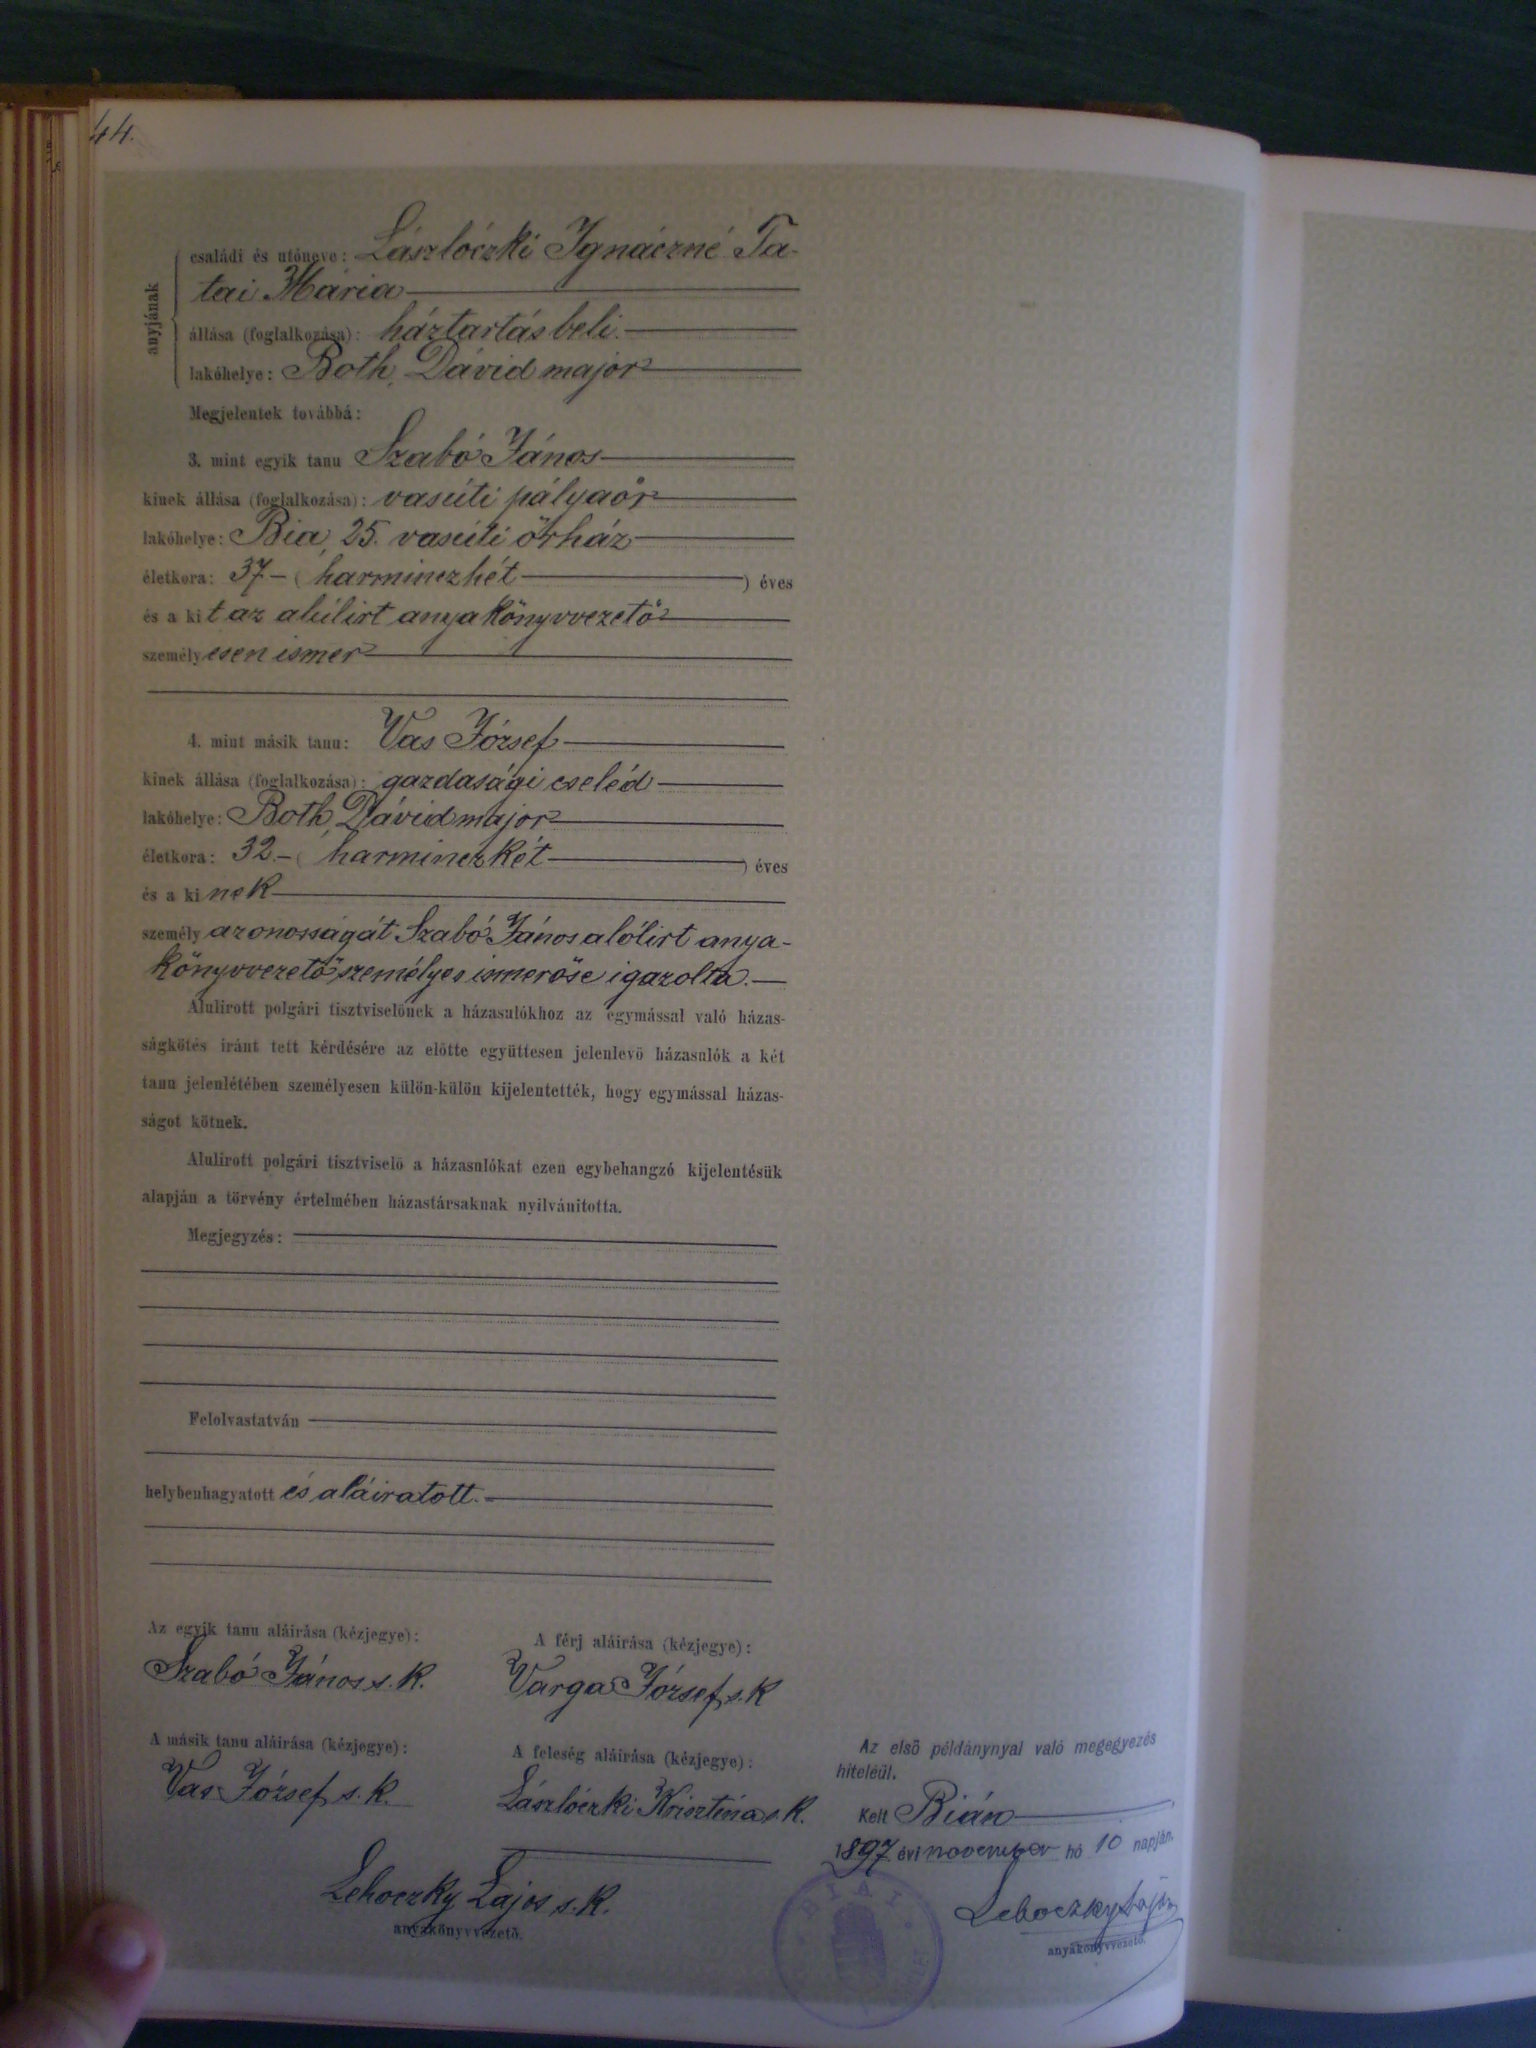 44.
anyjának
családi és utóneve: Lászlóczki Ignáczné Ta-
tai Mária
állása (foglalkozása): háztartásbeli.
lakóhelye: Both, Dávid major
Megjelentek továbbá:
3. mint egyik tanu Szabó János
kinek állása (foglalkozása): vasúti pályaőr
lakóhelye: Bia, 25. vasúti őrház
életkora: 37.– (harminczhét) éves
és a kit az alúlirt anyakönyvvezető
személyesen ismer
4. mint másik tanu: Vas József
kinek állása (foglalkozása): gazdasági cseléd
lakóhelye: Both, Dávid major
életkora: 32.– (harminczkét) éves
és a kinek
személyazonosságát Szabó János alólirt anya-
könyvvezető személyes ismerőse igazolta.
Alulirott polgári tisztviselőnek a házasulókhoz az egymással való házas-
ságkötés iránt tett kérdésére az előtte együttesen jelenlevő házasulók a két
tanu jelenlétében személyesen külön-külön kijelentették, hogy egymással házas-
ságot kötnek.
Alulirott polgári tisztviselő a házasulókat ezen egybehangzó kijelentésük
alapján a törvény értelmében házastársaknak nyilvánitotta.
Megjegyzés:
Felolvastatván
helybenhagyatott és aláiratott.
Az egyik tanu aláirása (kézjegye): A férj aláirása (kézjegye):
Szabó János s. k. Varga József s. k
A másik tanu aláirása (kézjegye): A feleség aláirása (kézjegye):
Vas József s. k. Lászlóczki Krisztina s. k.
Lehoczky Lajos s. k.
anyakönyvvezető.
Az első példánynyal való megegyezés
hiteléül.
Kelt Bián
1897 évi november hó 10 napján.
Lehoczky Lajos
anyakönyvvezető.
BIAI